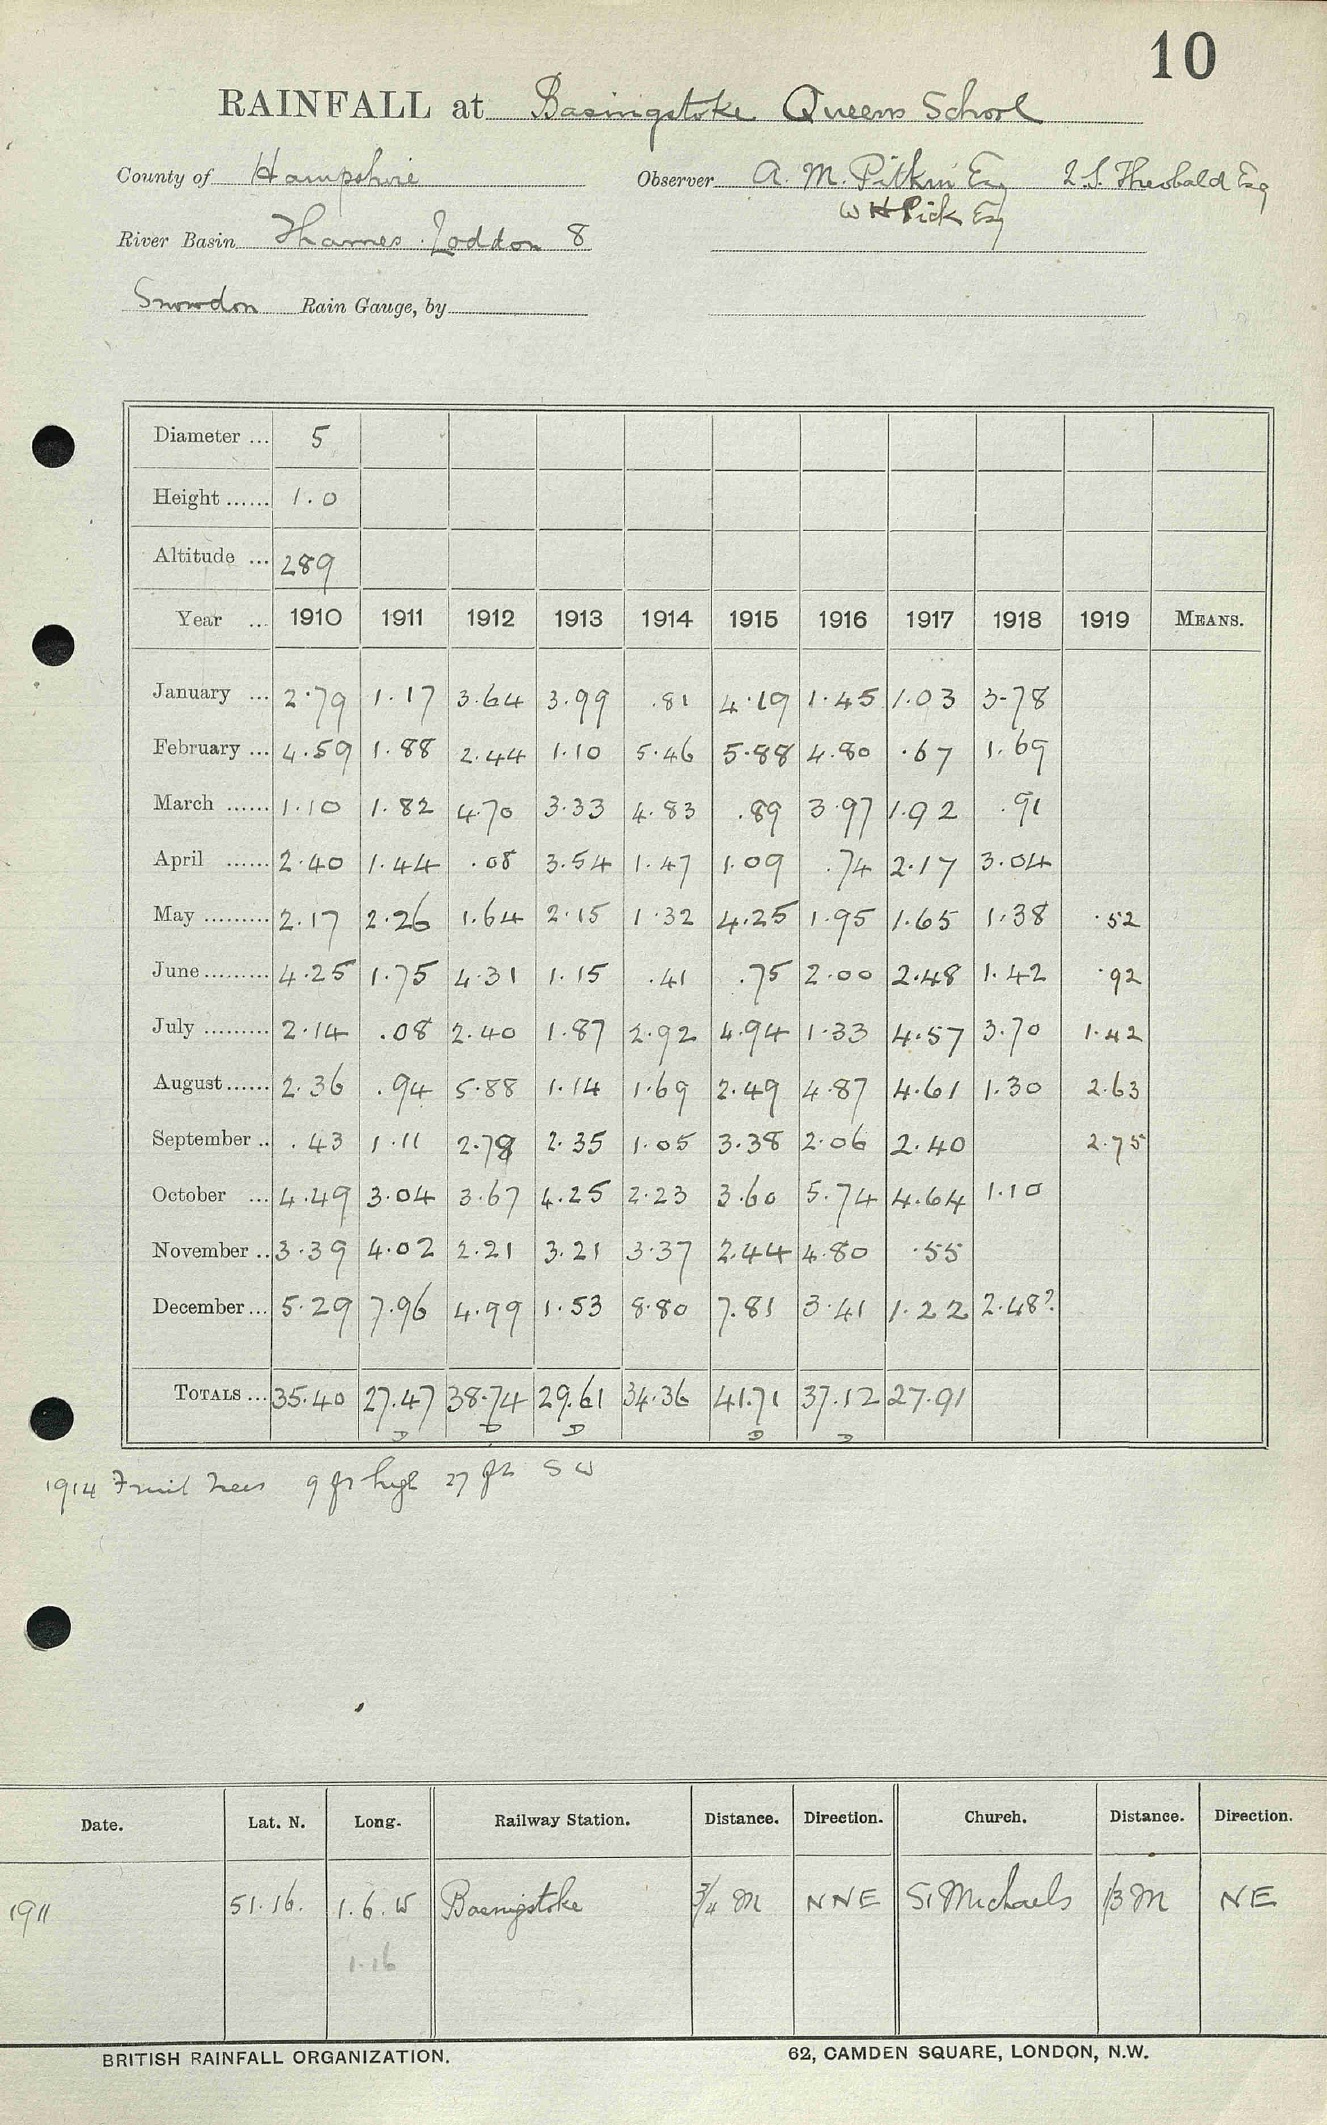 10
RAINFALL at Basingstoke Queens School
County of Hampshire Observer A. M. Pitkin Esq L.S. Theobald Esq
W H Pick Esq
River Basin Thames Loddon 8
Snowdon Rain Gauge, by
Diameter ... 5
Height ...... 1.0
Altitude ... 289
Year ... 1910 1911 1912 1913 1914 1915 1916 1917 1918 1919 MEANS.
January ... 2.79 1.17 3.64 3.99 .81 4.19 1.45 1.03 3.78
February ... 4.59 1.88 2.44 1.10 5.46 5.88 4.80 .67 1.69
March ...... 1.10 1.82 4.70 3.33 4.83 .89 3.97 1.92 .91
April ...... 2.40 1.44 .08 3.54 1.47 1.09 .74 2.17 3.04
May ......... 2.17 2.26 1.64 2.15 1.32 4.25 1.95 1.65 1.38 .52
June ......... 4.25 1.75 4.31 1.15 .41 .75 2.00 2.48 1.42 .92
July ......... 2.14 .08 2.40 1.87 2.92 4.94 1.33 4.57 3.70 1.42
August ...... 2.36 .94 5.88 1.14 1.69 2.49 4.87 4.61 1.30 2.63
September .. .43 1.11 2.78 2.35 1.05 3.38 2.06 2.40 2.75
October ... 4.49 3.04 3.67 4.25 2.23 3.60 5.74 4.64 1.10
November .. 3.39 4.02 2.21 3.21 3.37 2.44 4.80 .55
December ... 5.29 7.96 4.99 1.53 8.80 7.81 3.41 1.22 2.48?
TOTALS ... 35.40 27.47 38.74 29.61 34.36 41.71 37.12 27.91
D D D D D
1914 Fruit trees 9 ft high 27 ft SW
Date. Lat. N. Long. Railway Station. Distance. Direction. Church. Distance. Direction.
1911 51.16. 1.6.W Basingstoke 3/4 M NNE St Michaels 1/3 M NE
1.16
BRITISH RAINFALL ORGANIZATION. 62, CAMDEN SQUARE, LONDON, N.W.